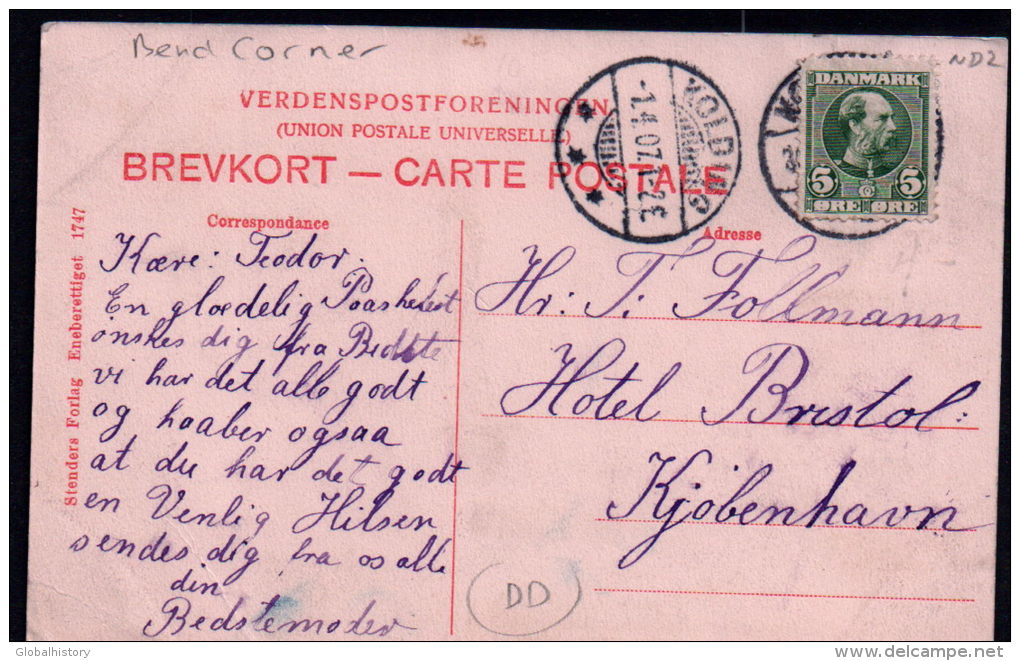 Bend Corner
ND2
VERDENSPOSTFORENINGEN
(UNION POSTALE UNIVERSELLE)
BREVKORT — CARTE POSTALE
KOLDING
1.4.07.
DANMARK
5 5
ØRE ØRE
Correspondance
Adresse
Kære: Teodor.
En glædelig Paaskefest
ønskes dig fra
vi har det alle godt
og haaber ogsaa
at du har det godt
en Venlig Hilsen
sendes dig fra os alle
din
Bedstemoder
Hr: T. Follmann
Hotel Bristol:
Kjøbenhavn
Stenders Forlag Eneberettiget 1747
DD
Globalhistory